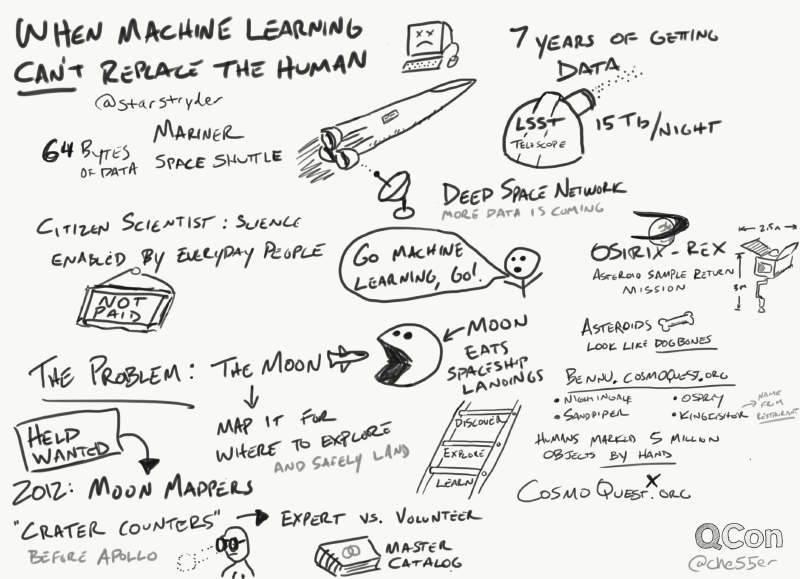 WHEN MACHINE LEARNING
CAN'T REPLACE THE HUMAN
@starstryder
64 BYTES
OF DATA
MARINER
SPACE SHUTTLE
7 YEARS OF GETTING
DATA
LSST
TELESCOPE
15 Tb/NIGHT
DEEP SPACE NETWORK
MORE DATA IS COMING
CITIZEN SCIENTIST: SCIENCE
ENABLED BY EVERYDAY PEOPLE
NOT
PAID
GO MACHINE
LEARNING, GO!
OSIRIX-REX
ASTEROID SAMPLE RETURN
MISSION
2.5m
3m
ASTEROIDS
LOOK LIKE DOGBONES
THE PROBLEM: THE MOON
MOON
EATS
SPACESHIP
LANDINGS
MAP IT FOR
WHERE TO EXPLORE
AND SAFELY LAND
DISCOVER
EXPLORE
LEARN
BENNU.COSMOQUEST.ORG
• NIGHTINGALE
• OSPREY
• SANDPIPER
• KINGFISHER
NAME
FROM
RESTAURANT
HUMANS MARKED 5 MILLION
OBJECTS BY HAND
COSMOQUEST.ORG
X
HELD
WANTED
2012: MOON MAPPERS
"CRATER COUNTERS" → EXPERT VS. VOLUNTEER
BEFORE APOLLO
MASTER
CATALOG
QCon
@che55er